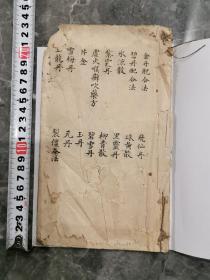 金丹配合法
碧丹配合法
冰涼散
紫雪丹
虛火喉癬吹藥方
雪梅丹
玉龍丹
飛仙丹
珠黃散
黑靈丹
柳青散
碧雪丹
玉丹
元丹
製僵蚕法